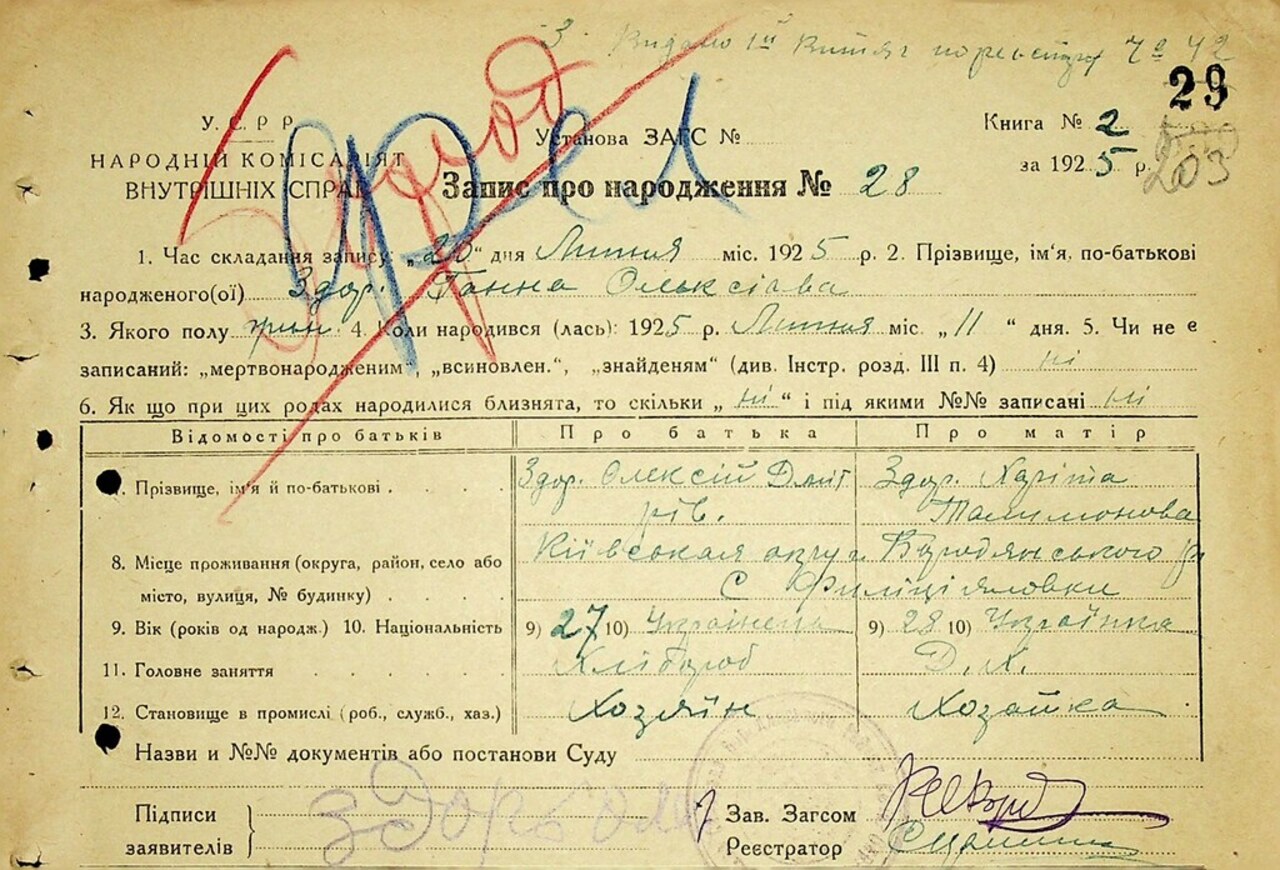 3. Видано 1й витяг по реєстру № 42
29
У. С. Р. Р.
НАРОДНІЙ КОМІСАРІЯТ
ВНУТРІШНІХ СПРАВ
Установа ЗАГС №
Книга № 2
за 1925 р.
203
Запис про народження № 28
1. Час складання запису: „20“ дня Липня міс. 1925 р. 2. Прізвище, ім'я, по-батькові
народженого(ої) Здор. Ганна Олексієва
3. Якого полу жин. 4. Коли народився (лась): 1925 р. Липня міс. „11“ дня. 5. Чи не є
записаний: „мертвонародженим“, „всиновлен.“, „знайденям“ (див. Інстр. розд. III п. 4) ні
6. Як що при цих родах народилися близнята, то скільки „ні“ і під якими №№ записані ні
Відомості про батьків Про батька Про матір
7. Прізвище, ім'я й по-батькові Здор. Олексій Дмит Здор. Харіта
рів. Талимонова
8. Місце проживання (округа, район, село або Київськая округа Бородянського р
місто, вулиця, № будинку) С Филиціяловки
9. Вік (років од народж.) 10. Національність 9) 27 10) Українець 9) 28 10) Українка
11. Головне заняття Хлібороб Д.Х.
12. Становище в промислі (роб., служб., хаз.) Хозяїн Хозайка
Назви и №№ документів або постанови Суду
Підписи
заявителів
Зав. Загсом
Реєстратор